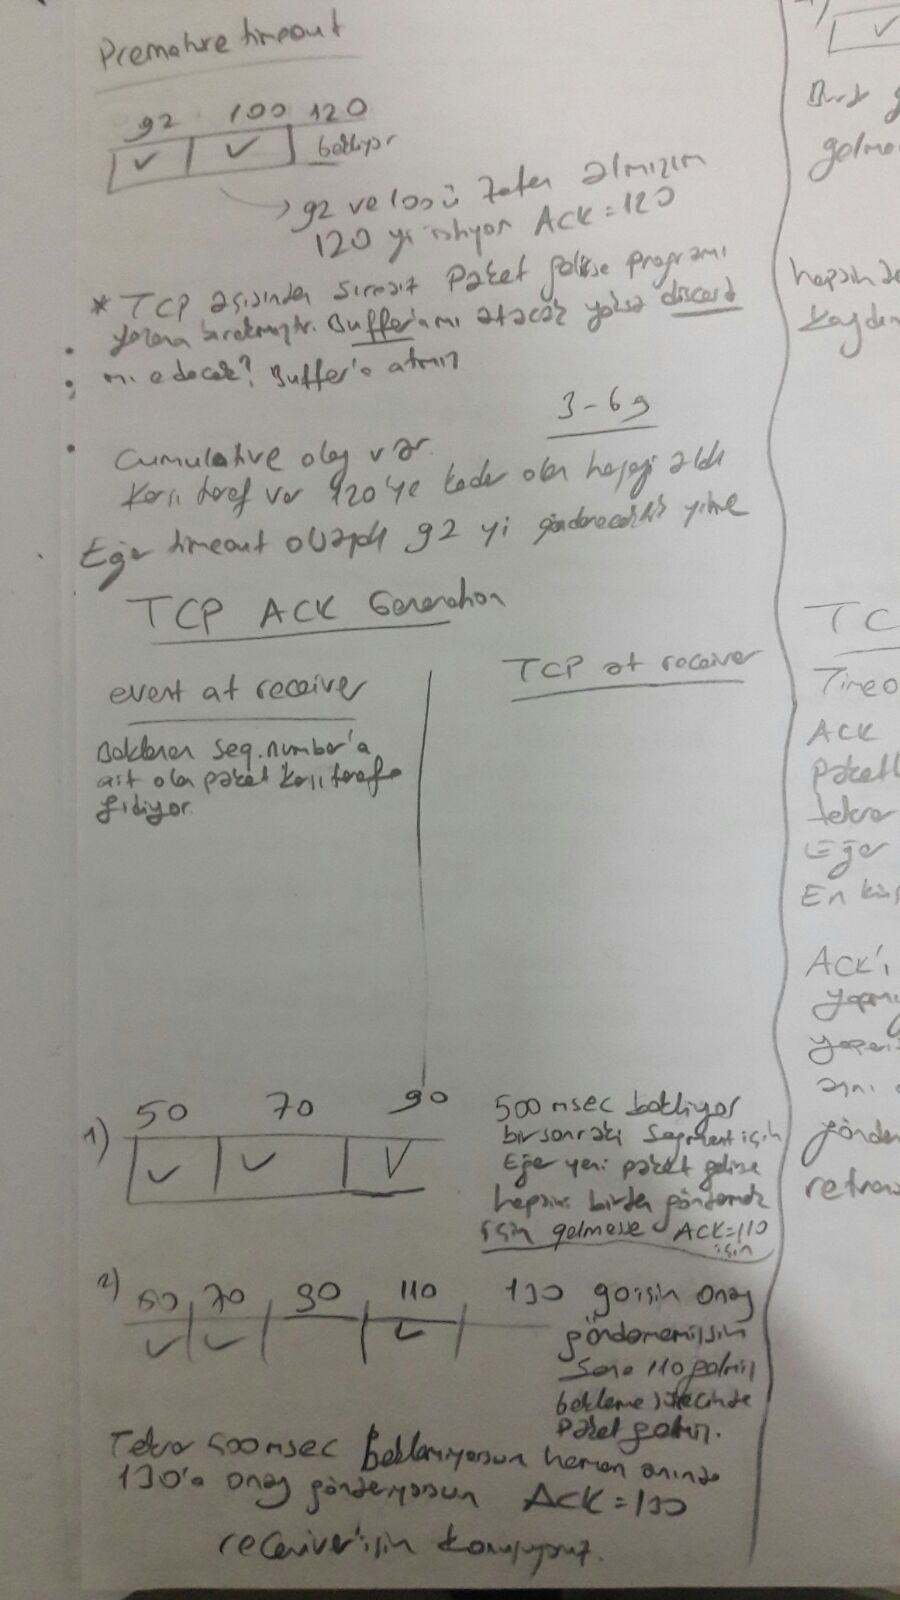 Premature timeout
92 100 120
✓ ✓ bekliyor
→ 92 ve 100ü zaten almışım
120 yi istiyor ACK=120
* TCP açısından sırasız paket gelirse programı
yazana bırakmıştır. Buffer'amı atacak yoksa discard
mı edecek? Buffer'a atmış
3-69
Cumulative olay var.
Karşı taraf var 120'ye kadar olan herşeyi aldı
Eğer timeout olsaydı 92 yi gönderecektik yine
TCP ACK Generation
event at receiver
TCP at receiver
Beklenen seq. number'a
ait olan paket karşı tarafa
gidiyor.
1) 50 70 90
✓ ✓ V
500 msec bekliyor
bir sonraki segment için
Eğer yeni paket gelirse
hepsini birden göndermek
için gelmese ACK=110
için
2) 50 70 90 110 130
✓ ✓ ✓
90 için onay
göndermemişsin
Sana 110 gelmiş
bekleme sürecinde
Paket gelmiş.
Tekrar 500 msec beklemiyorsun hemen anında
130'a onay gönderiyorsun ACK=130
receiver için konuşuyoruz.
Burda
gelme
hepsinde
TC
Timeo
ACK
Paketl
tekrar
Eğer
En
ACK'ı
gönder
retrans